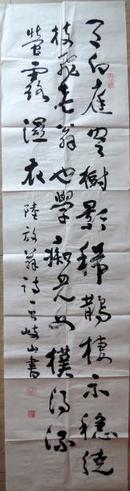 月白庭空樹影稀鵲棲不穩繞
枝飛老翁也學痴兒女撲得流
螢露濕衣 陸放翁詩 岐山書